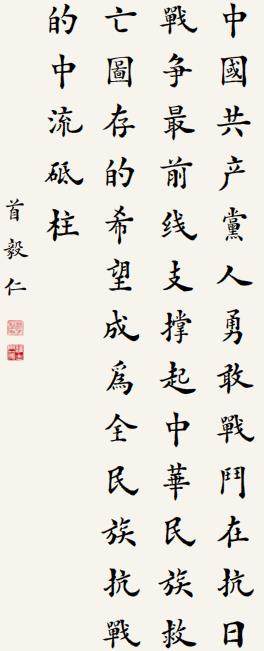 中國共产黨人勇敢戰鬥在抗日
戰争最前线支撑起中華民族救
亡圖存的希望成爲全民族抗戰
的中流砥柱
首毅仁